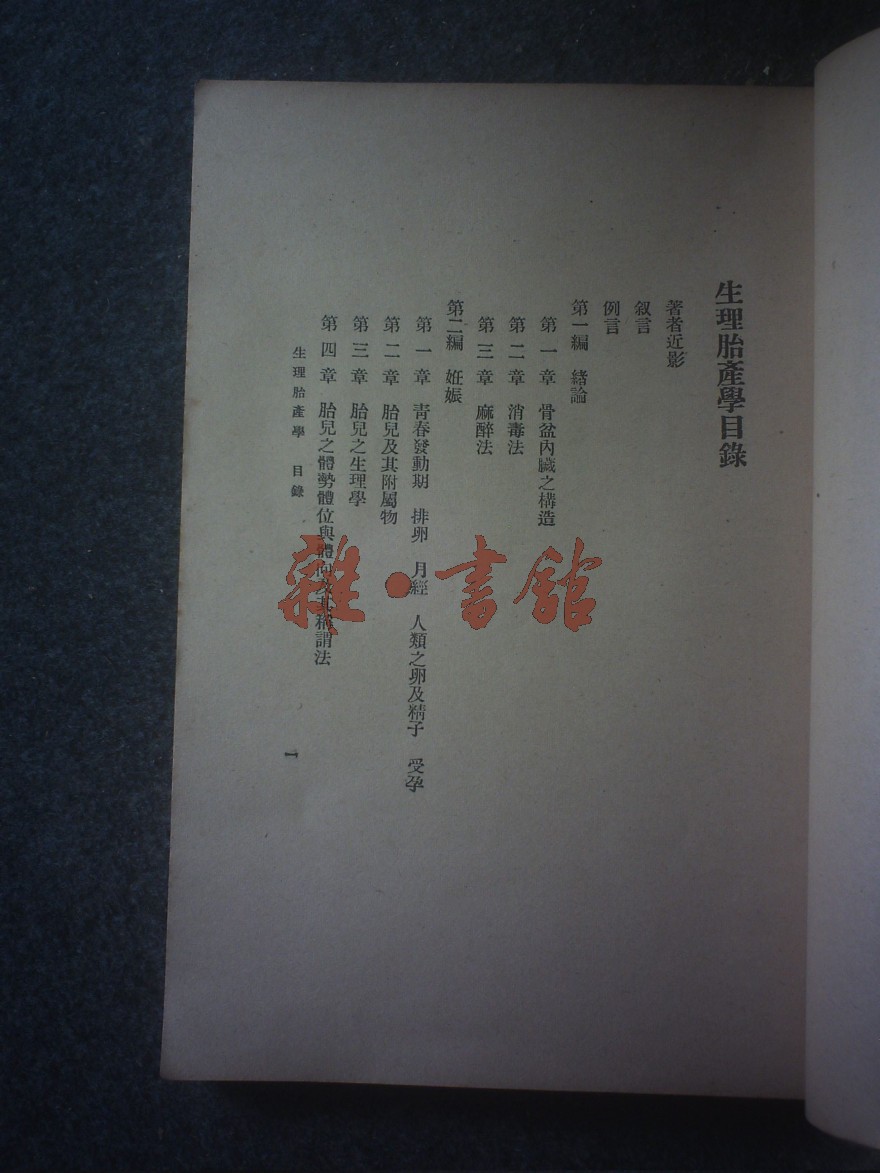 生理胎產學目錄
著者近影
叙言
例言
第一編　緒論
第一章　骨盆內臟之構造
第二章　消毒法
第三章　麻醉法
第二編　妊娠
第一章　青春發動期　排卵　月經　人類之卵及精子　受孕
第二章　胎兒及其附屬物
第三章　胎兒之生理學
第四章　胎兒之體勢體位與體向及其稱謂法
生理胎產學　目錄
一
雜·書館